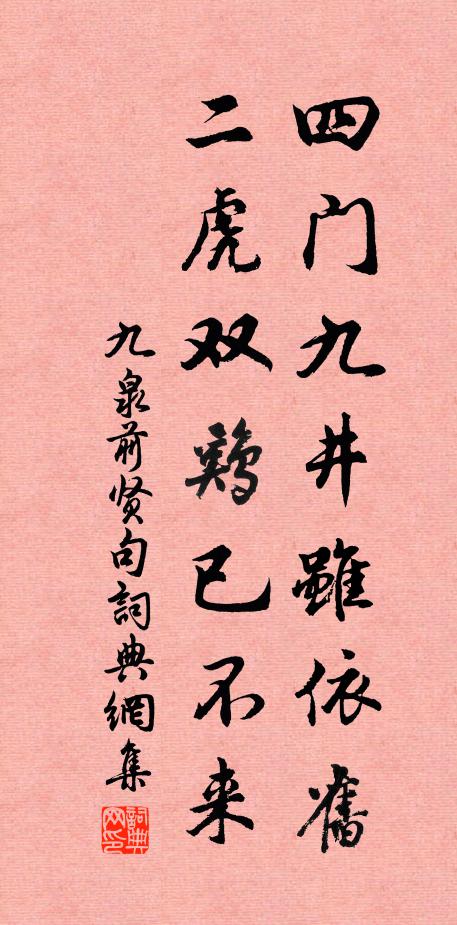 四门九井雖依舊
二虎双鷄已不来
九泉前贤句詞典網集
詞典网印